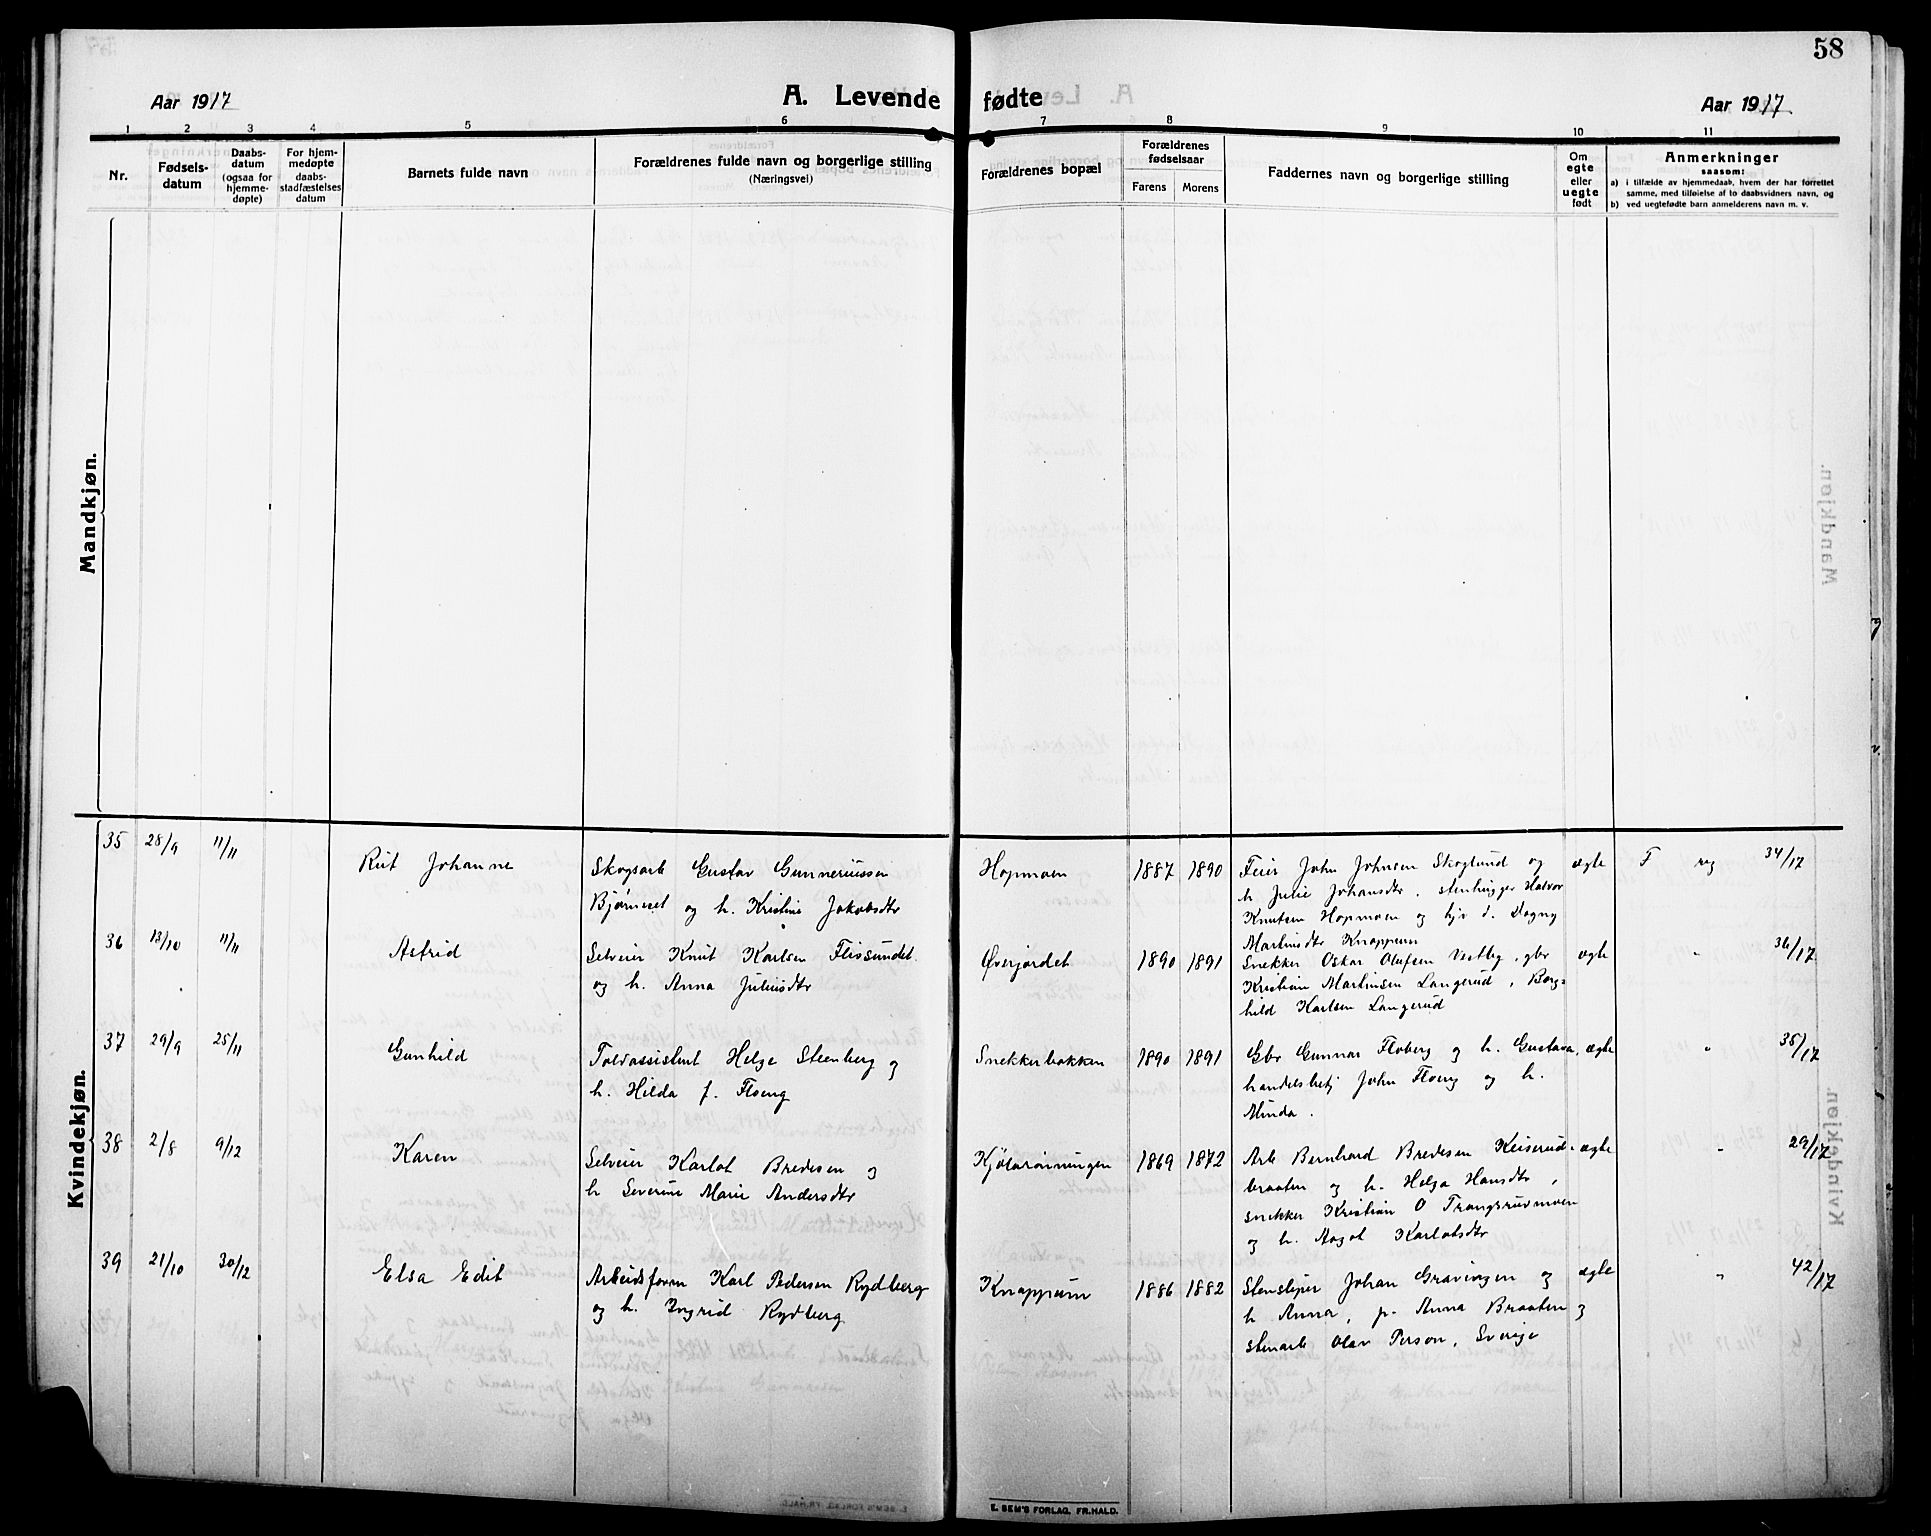 58
Aar 1917
A. Levende fødte
Aar 1917
1 2 3 4 5 6 7 8 9 10 11
Nr.
Fødsels-
datum
Daabs-
datum
(ogsaa for
hjemme-
døpte)
For hjem-
medøpte
daabs-
stadfæstelses
datum
Barnets fulde navn
Forældrenes fulde navn og borgerlige stilling
(Næringsvei)
Forældrenes bopæl
Forældrenes
fødselsaar
Farens Morens
Faddernes navn og borgerlige stilling
Om
egte
eller
uegte
født
Anmerkninger
saasom:
a) i tilfælde av hjemmedaab, hvem der har forrettet
samme, med tilføielse af to daabsvidners navn, og
b) ved uegtefødte barn anmelderens navn m. v.
Mandkjøn.
Kvindekjøn.
35 28/9 11/11 Rut Johanne
Skogsarb Gustav Gunneriussen
Bjørneset og h. Kristine Jakobsdtr
Hopmoen 1887 1890
Feier John Johnsen Skoglund og
h Julie Johansdtr, stenhugger Halvor
Knutsen Hopmoen og Dagny
Martinsdtr Knappum
egte F reg 34/17
36 13/10 11/11 Astrid
Selveier Knut Karlsen Flisundet
og h. Anna Juliusdtr
Øverjordet 1890 1891
Snekker Oskar Olufsen Vestby, gbr
Kristian Martinsen Langerud, Borg-
hild Karlsen Langerud
egte " 36/17
37 29/9 25/11 Gunhild
Toldassistent Helge Steenberg og
h. Hilda f. Floeng
Snekkerbakken 1890 1891
Gbr Gunnar Floberg og h. Gustava,
handelsbetj John Floeng og h.
Minda.
egte " 35/17
38 2/8 9/12 Karen
Selveier Karlot Bredesen og
h Severine Marie Andersdtr
Kjølarønningen 1869 1872
Arb Bernhard Bredesen Keiserud-
braaten og h. Helga Hansdtr,
snekker Kristian O Trangsrudmoen
og h. Aagot Karlotsdtr
egte " 29/17
39 21/10 30/12 Elsa Edit
Arbeidsform Karl Pedersen Rydberg
og h. Ingrid Rydberg
Knappum 1886 1882
Stensliper Johan Gravingen og
h Anna, p. Anna Braaten og
stenarb Olav Person, Sverige
egte " 42/17
E. SEM'S FORLAG, FR.HALD.